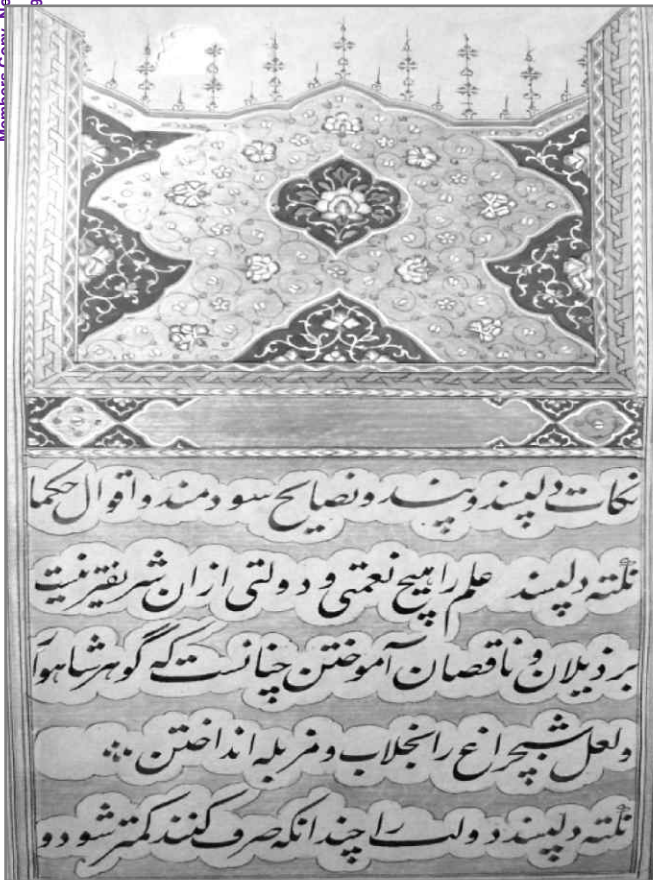 Members Copy
نکات دلپسند و پند و نصایح سودمند و اقوال حکما
نکته دلپسند علم را هیچ نعمتی و دولتی ازان شریفتر نیست
بر ذیلان و ناقصان آموختن چنانست که گوهر شاهوار
ولعل شبچراغ را بخلاب و مزبله انداختن
نکته دلپسند دولت را چندانکه صرف کنند کمتر شود و